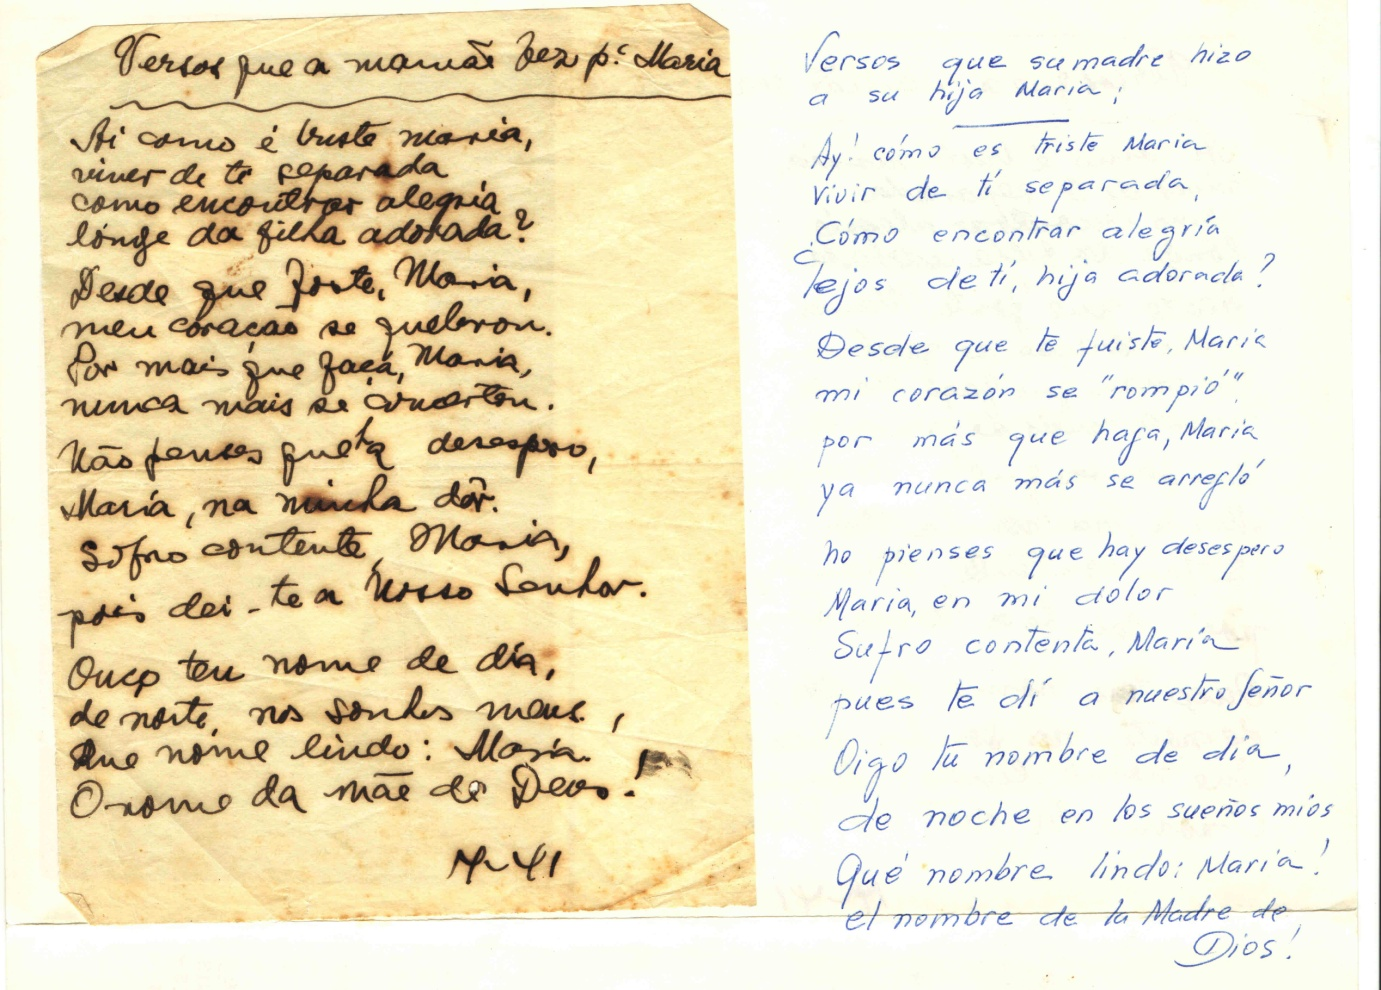 Versos que a mamãe fez p.ª Maria
Ai como é triste maria,
viver de ti separada
como encontrar alegria
lónge da filha adorada?
Desde que foste, Maria,
meu coração se quebrou.
Por mais que faça, Maria,
nunca mais se consertou.
Não penses que há desespero,
Maria, na minha dôr.
Sofro contente, Maria,
pois dei-te a Nosso Senhor.
Ouço teu nome de dia,
de noite, nos sonhos meus,
Que nome lindo: Maria.
O nome da mãe de Deus!
41
Versos que su madre hizo
a su hija Maria:
Ay! cómo es triste Maria
vivir de tí separada,
¿Cómo encontrar alegría
lejos de tí, hija adorada?
Desde que te fuiste, Maria
mi corazón se "rompió".
por más que haga, Maria
ya nunca más se arregló
no pienses que hay desespero
Maria, en mi dolor
Sufro contenta, María
pues te dí a nuestro Señor
Oigo tu nombre de dia,
de noche en los sueños mios
Qué nombre lindo: Maria!
el nombre de la Madre de
Dios!